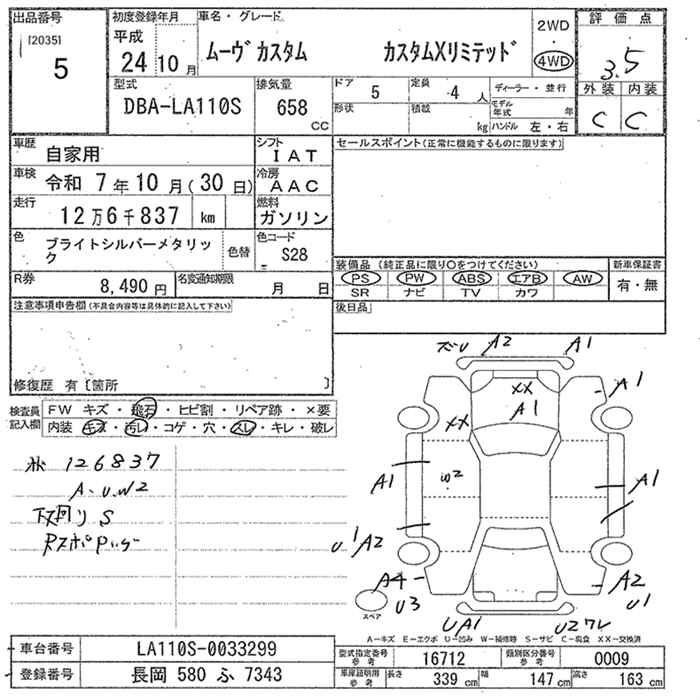 出品番号
[2035]
5
初度登録年月
平成
24 10月
車名・グレード
ムーヴカスタム カスタムXリミテッド
2WD
4WD
評価点
3.5
外装 内装
C C
型式
DBA-LA110S
排気量
658
CC
ドア
5
定員
4人
形状
積載
kg
ディーラー・並行
モデル年式 年
ハンドル 左・右
車歴
自家用
シフト
IAT
車検
令和 7年10月(30日)
冷房
AAC
走行
12万6千837 km
燃料
ガソリン
色
ブライトシルバーメタリック
色替
色コード
S28
R券
8,490円
名変通知期限
月 日
セールスポイント(正常に機能するものに限ります)
装備品 (純正品に限り○をつけてください)
PS PW ABS エアB AW
SR ナビ TV カワ
新車保証書
有・無
後日品
注意事項申告欄(不具合内容等は具体的に記入して下さい)
修復歴 有〔箇所 〕
検査員記入欄
FW キズ・飛石・ヒビ割・リペア跡・×要
内装 キズ・汚レ・コゲ・穴・スレ・キレ・破レ
126837
A・U・W2
下廻りS
A2 A1
A1
XX
A1
XX
W2
A1
A1
U1 A2
A4
U3
A2
U1
UA1
U2ワレ
スペア
A―キズ E―エクボ U―凹み W―補修跡 S―サビ C―腐食 XX―交換済
車台番号
LA110S-0033299
登録番号
長岡 580 ふ 7343
型式指定番号 参考
16712
類別区分番号 参考
0009
車庫証明用 参考
長さ 339 cm
幅 147 cm
高さ 163 cm